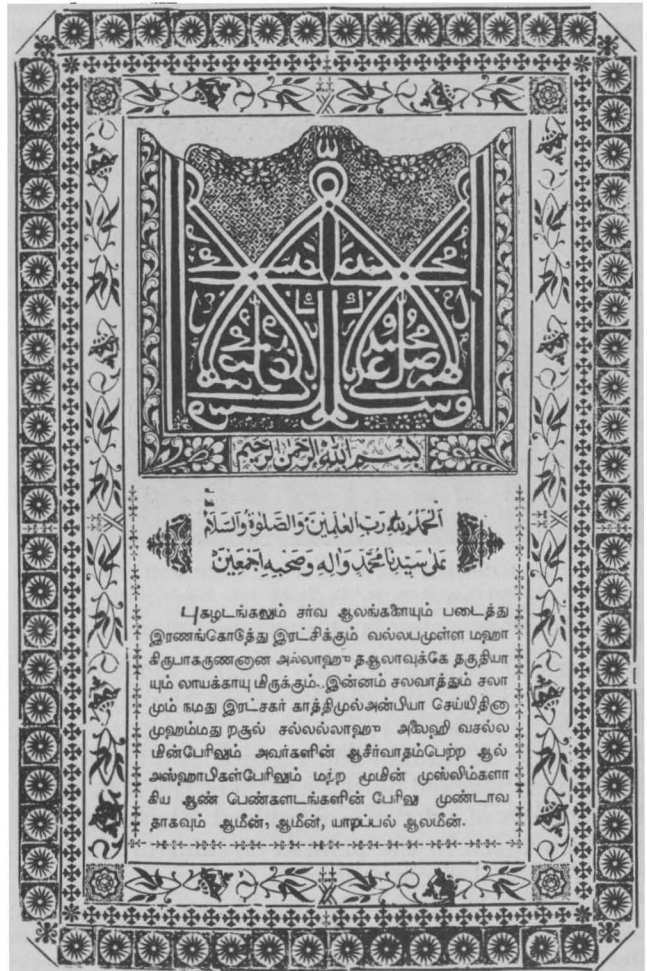 بسم الله الرحمن الرحيم
الحمد لله رب العلمين والصلوة والسلام
على سيدنا محمد واله وصحبه اجمعين
புகழடங்கலும் சர்வ ஆலங்களையும் படைத்து
இரணங்கொடுத்து இரட்சிக்கும் வல்லபமுள்ள மஹா
கிருபாகருணனான அல்லாஹு தஆலாவுக்கே தகுதியா
யும் லாயக்காயு மிருக்கும்..இன்னம் சலவாத்தும் சலா
மும் நமது இரட்சகர் காத்திமுல்அன்பியா செய்யிதினா
முஹம்மது றசூல் சல்லல்லாஹு அலைஹி வசல்ல
மின்பேரிலும் அவர்களின் ஆசீர்வாதம்பெற்ற ஆல்
அஸ்ஹாபிகள்பேரிலும் மற்ற முமின் முஸ்லிம்களா
கிய ஆண் பெண்களடங்களின் பேரிலு முண்டாவ
தாகவும் ஆமீன், ஆமீன், யாறப்பல் ஆலமீன்.